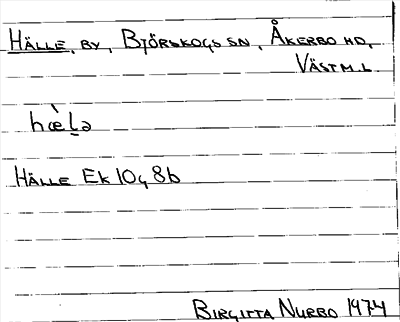 HÄLLE, BY, BJÖRSKOGS SN, ÅKERBO HD,
VÄSTM.L.
hæ̀l̠ə
HÄLLE EK 10g 8b
BIRGITTA NURBO 1974